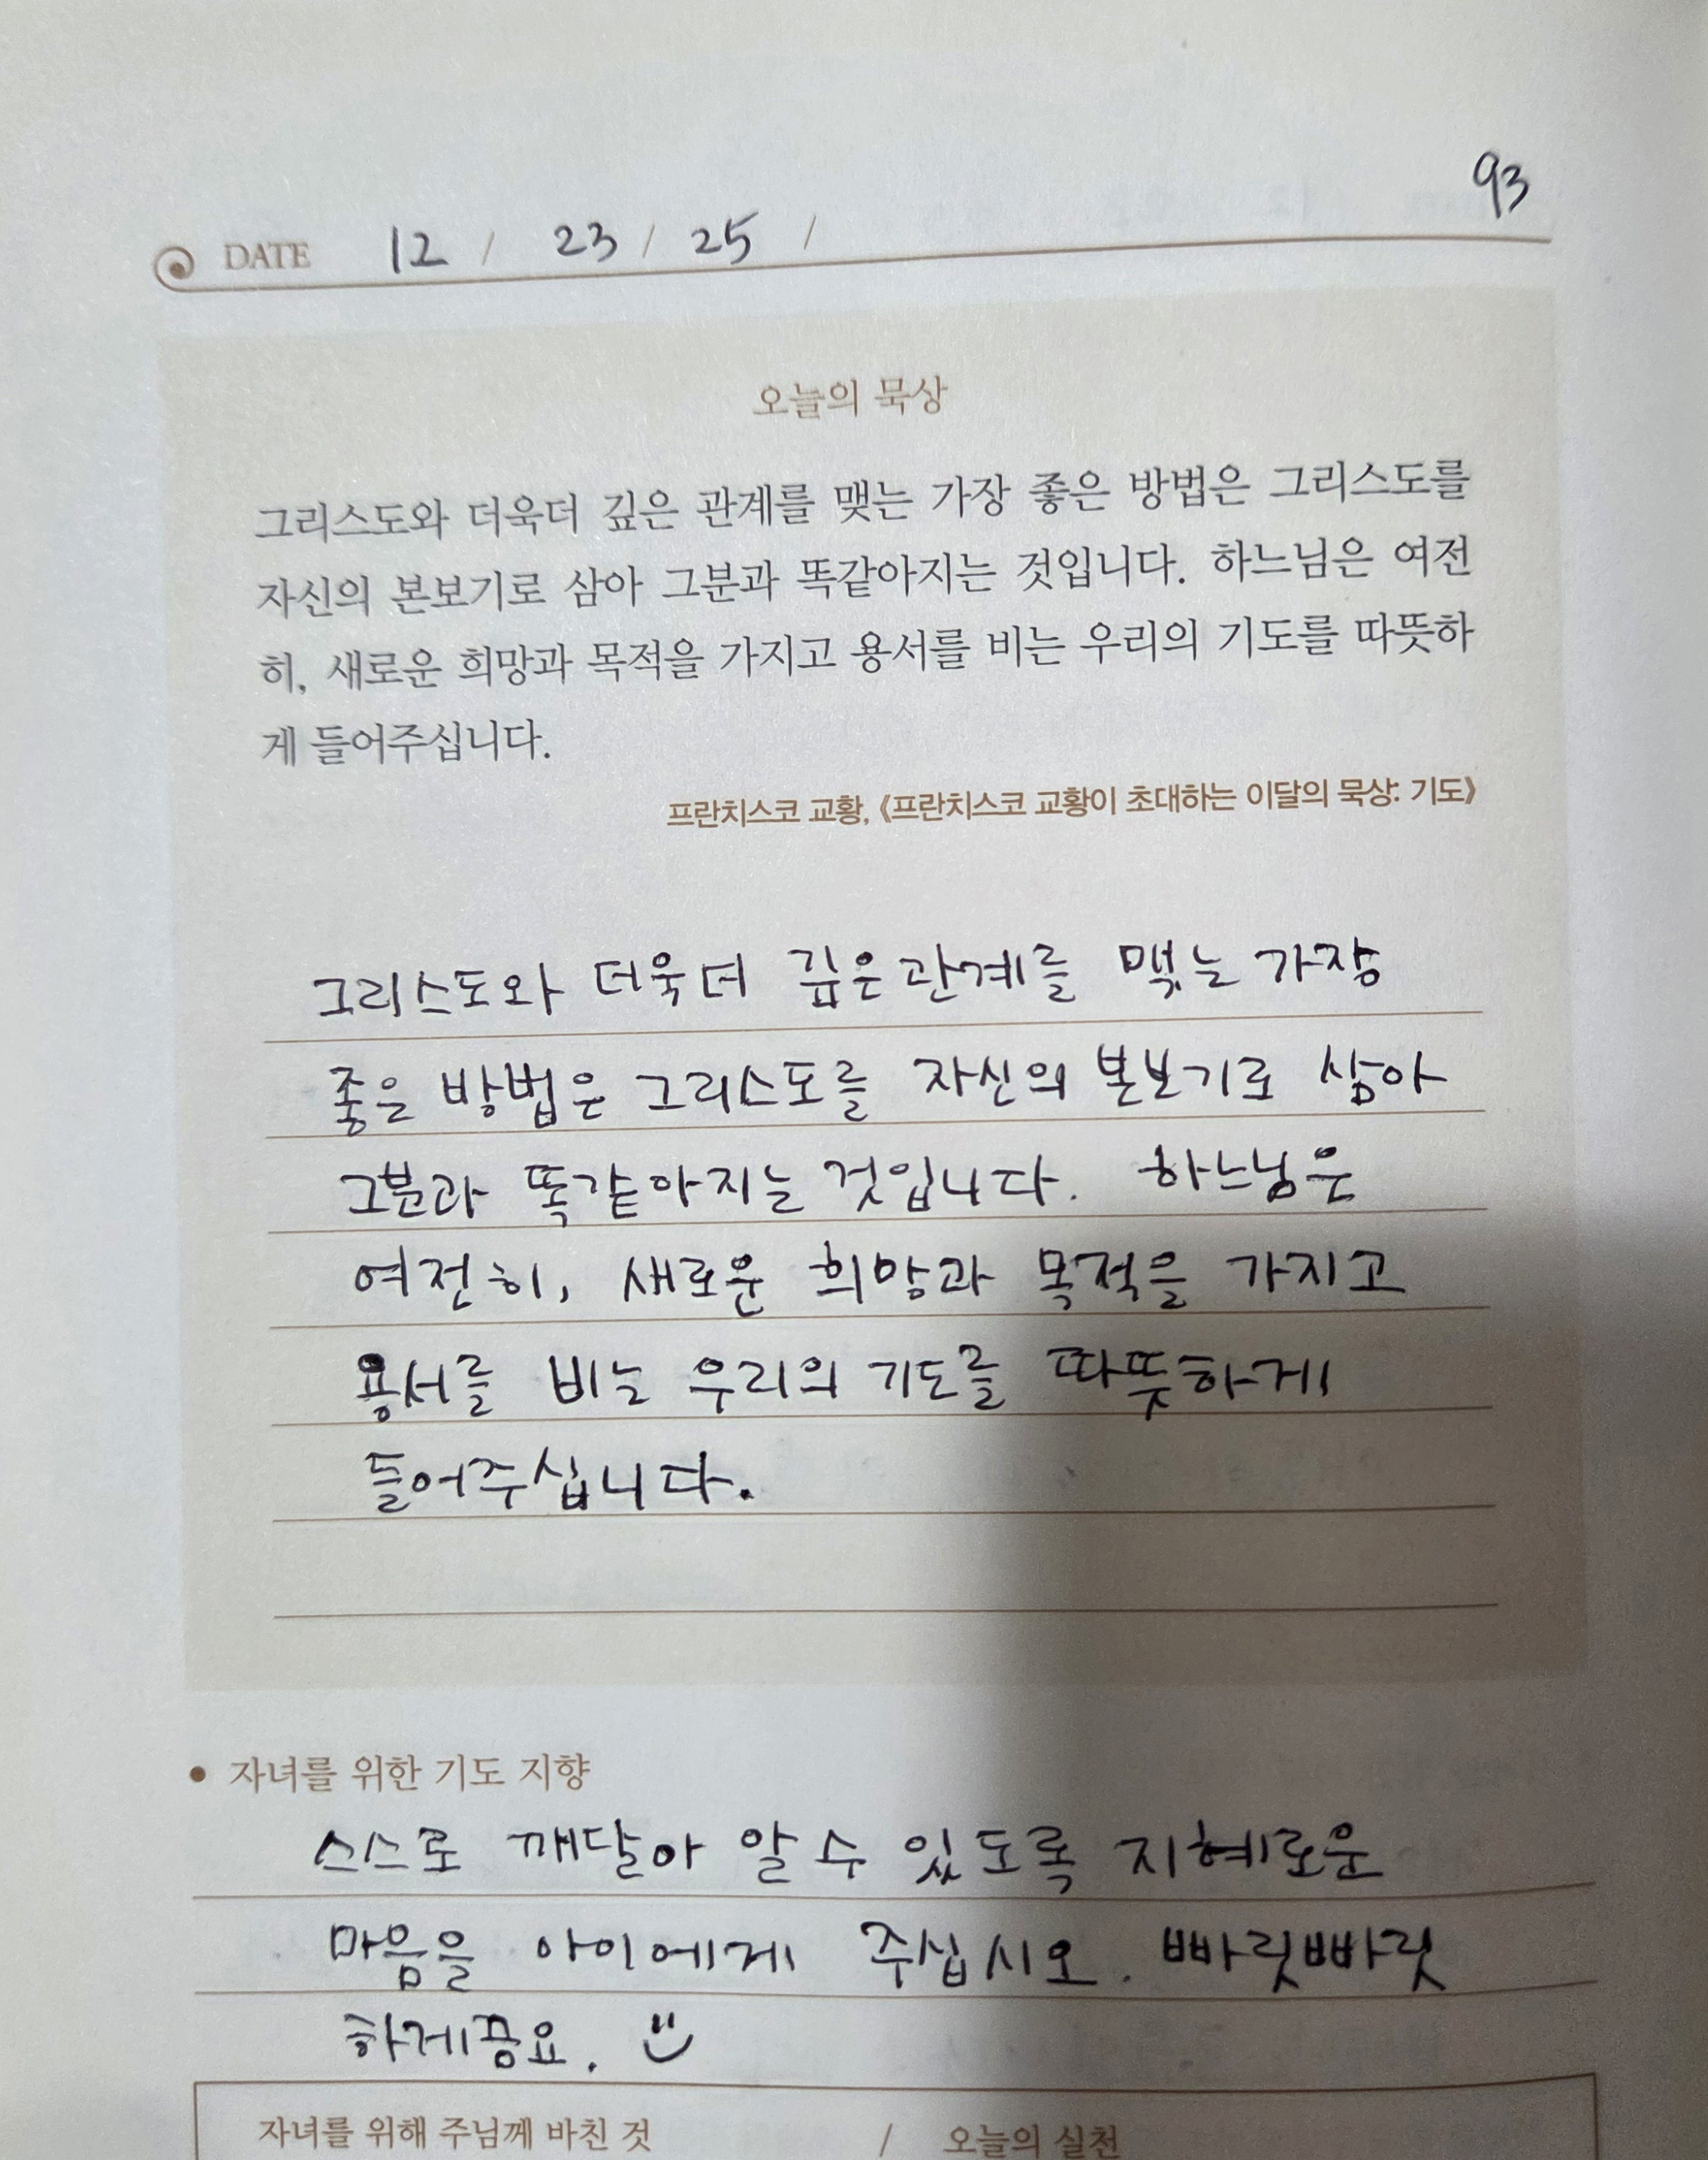 93
DATE 12 / 23 / 25 /
오늘의 묵상
그리스도와 더욱더 깊은 관계를 맺는 가장 좋은 방법은 그리스도를
자신의 본보기로 삼아 그분과 똑같아지는 것입니다. 하느님은 여전
히, 새로운 희망과 목적을 가지고 용서를 비는 우리의 기도를 따뜻하
게 들어주십니다.
프란치스코 교황, 《프란치스코 교황이 초대하는 이달의 묵상: 기도》
그리스도와 더욱더 깊은관계를 맺는 가장
좋은 방법은 그리스도를 자신의 본보기로 삼아
그분과 똑같아지는 것입니다. 하느님은
여전히, 새로운 희망과 목적을 가지고
용서를 비는 우리의 기도를 따뜻하게
들어주십니다.
• 자녀를 위한 기도 지향
스스로 깨달아 알 수 있도록 지혜로운
마음을 아이에게 주십시오. 빠릿빠릿
하게끔요. :)
자녀를 위해 주님께 바친 것 / 오늘의 실천